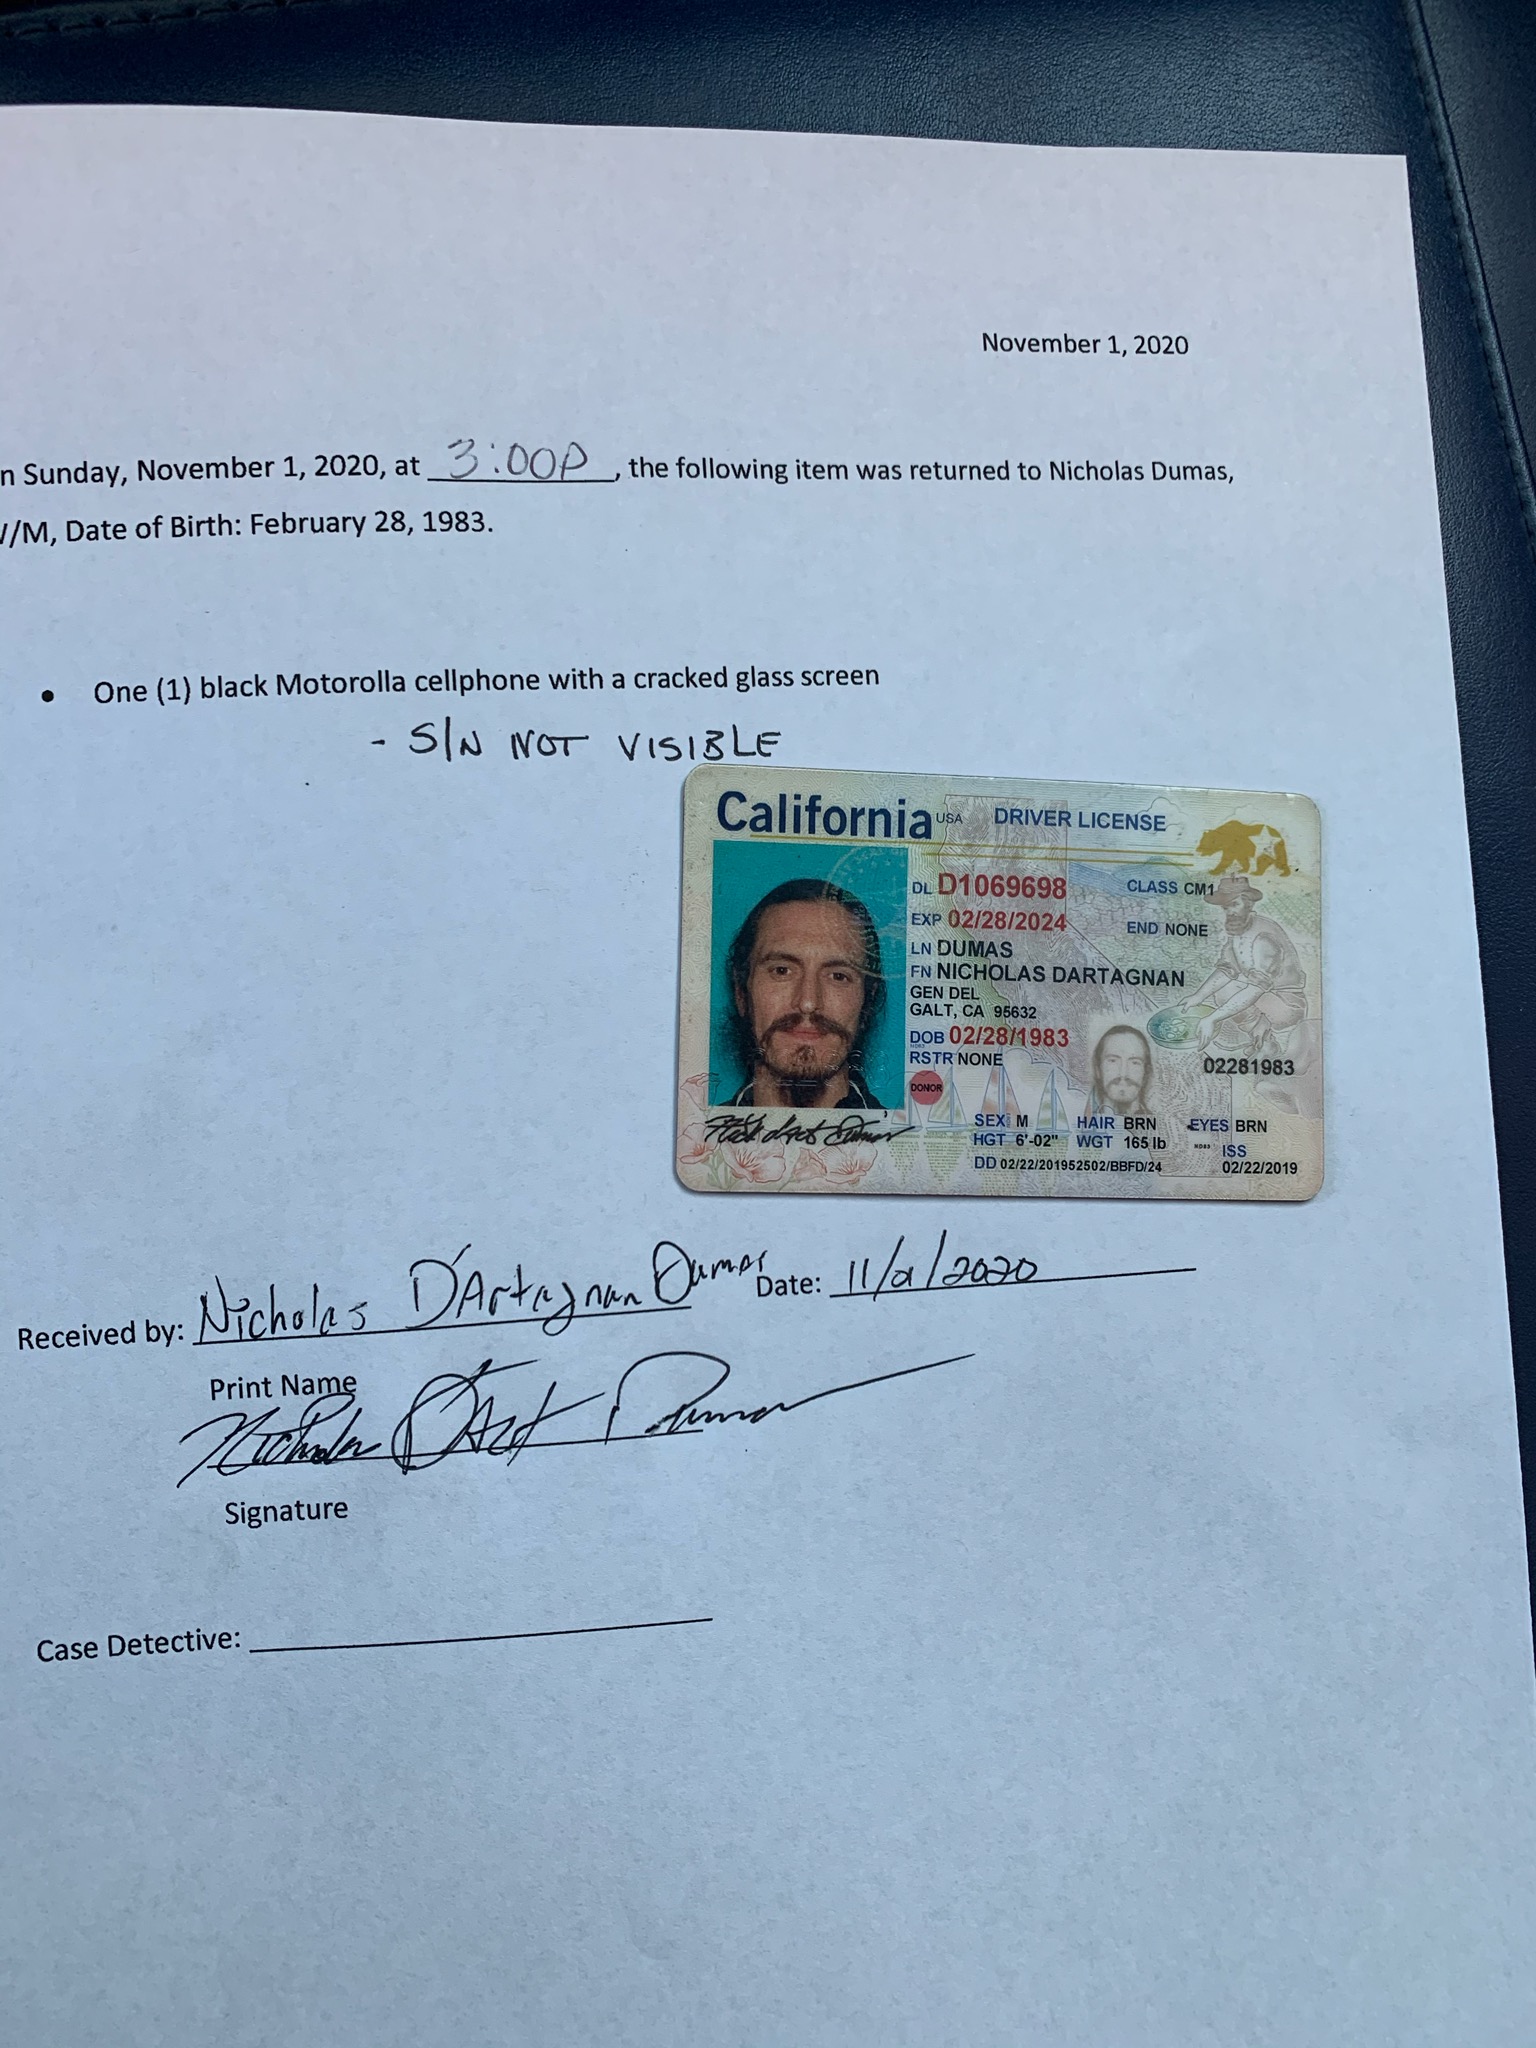 November 1, 2020
n Sunday, November 1, 2020, at 3:00P, the following item was returned to Nicholas Dumas,
/M, Date of Birth: February 28, 1983.
• One (1) black Motorolla cellphone with a cracked glass screen
- S/N NOT VISIBLE
California USA DRIVER LICENSE
DL D1069698 CLASS CM1
EXP 02/28/2024 END NONE
LN DUMAS
FN NICHOLAS DARTAGNAN
GEN DEL
GALT, CA 95632
DOB 02/28/1983
RSTR NONE 02281983
DONOR
SEX M HAIR BRN EYES BRN
HGT 6'-02" WGT 165 lb ISS
DD 02/22/201952502/BBFD/24 02/22/2019
Received by: Nicholas D'Artagnan Dumas Date: 11/01/2020
Print Name
Nicholas D'Art Dumas
Signature
Case Detective: